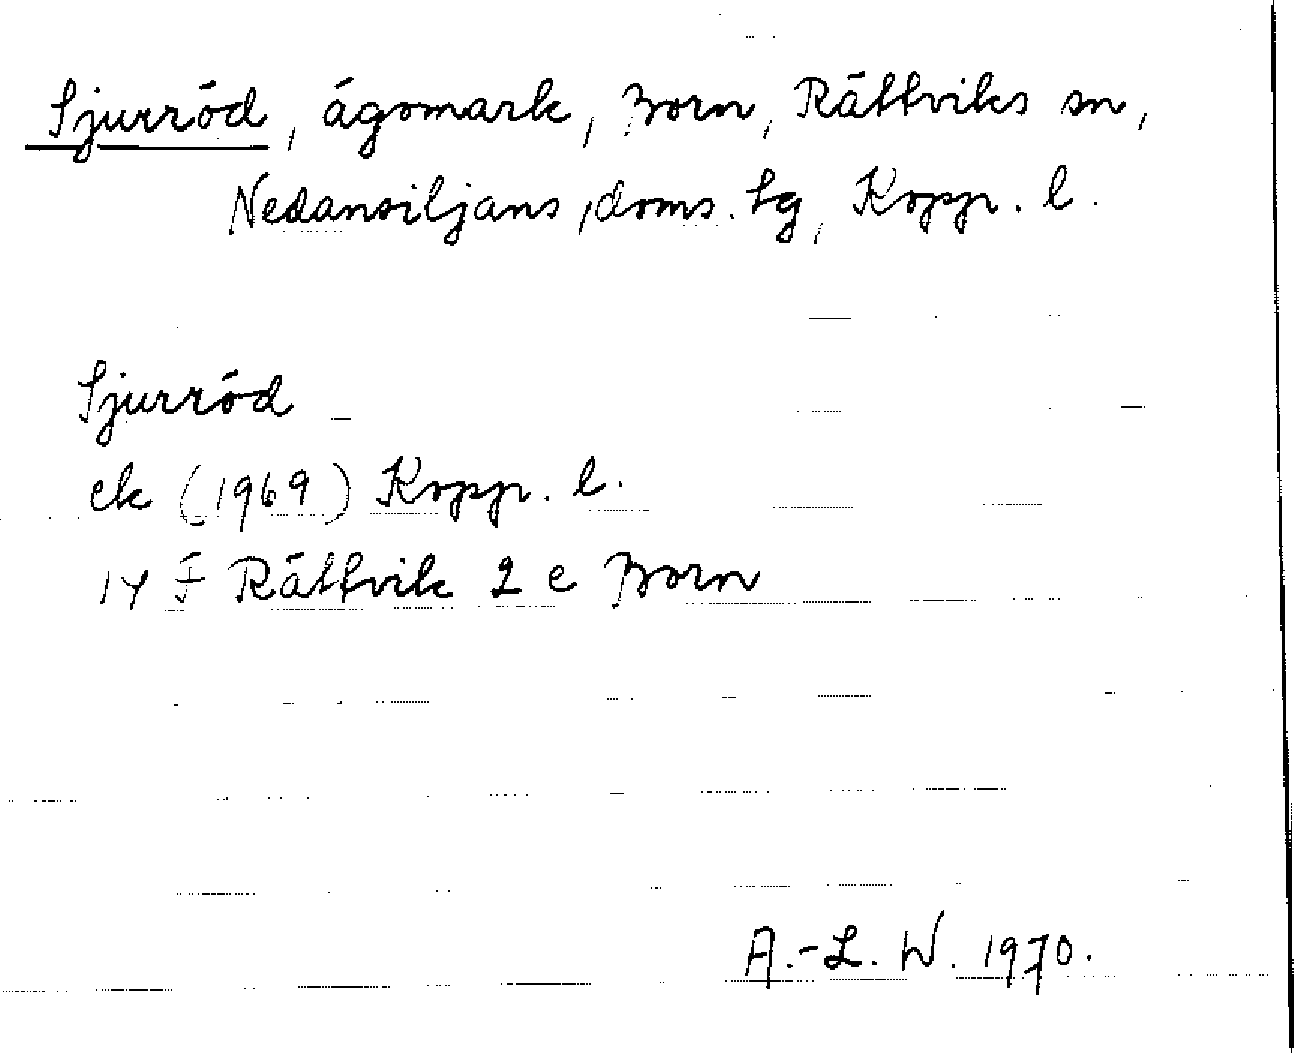 Sjurröd, ägomark, Born, Rättviks sn,
Nedansiljans, doms. tg, Kopp. l.
Sjurröd
ek (1969) Kopp. l.
14 F Rättvik 2 c Born
A.-L. W. 1970.